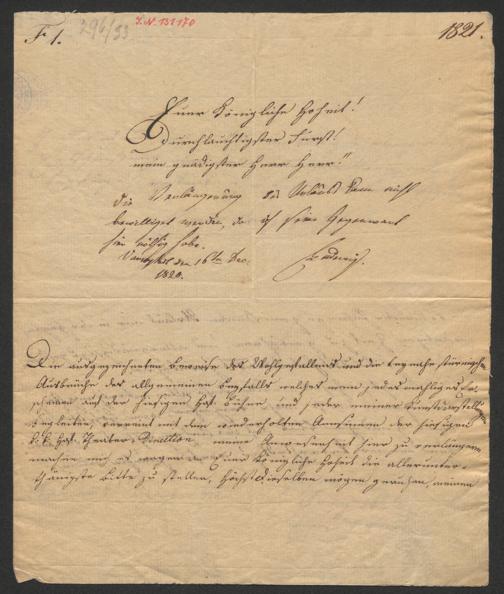 F 1.
296/33
I.N. 131170
1821.
Euer Königliche Hoheit!
Durchlauchtigster Fürst!
mein gnädigster Herr Herr!!
die Verlängerung des Urlaubs kann nicht
bewilliget werden, da ich seine Gegenwart
hier nöthig habe.
den 16ten Dec.
1820.
Die ausgezeichneten Beweise des Wohlgefallens und die beynahe stürmischen
Ausbrüche des allgemeinen Beyfalls welcher mein jedesmahliges Er-
scheinen auf der hiesigen Hof-Bühne und jeder meiner Kunstdarstellungen
begleitet, vereint mit dem wiederholten Ansinnen der hiesigen
k.k. Hof-Theater-Direktion meine Anwesenheit hier zu verlängern
machen mich es wagen an Euer Königliche Hoheit die allerunter-
thänigste Bitte zu stellen, Höchstdieselben mögen geruhen, meinen